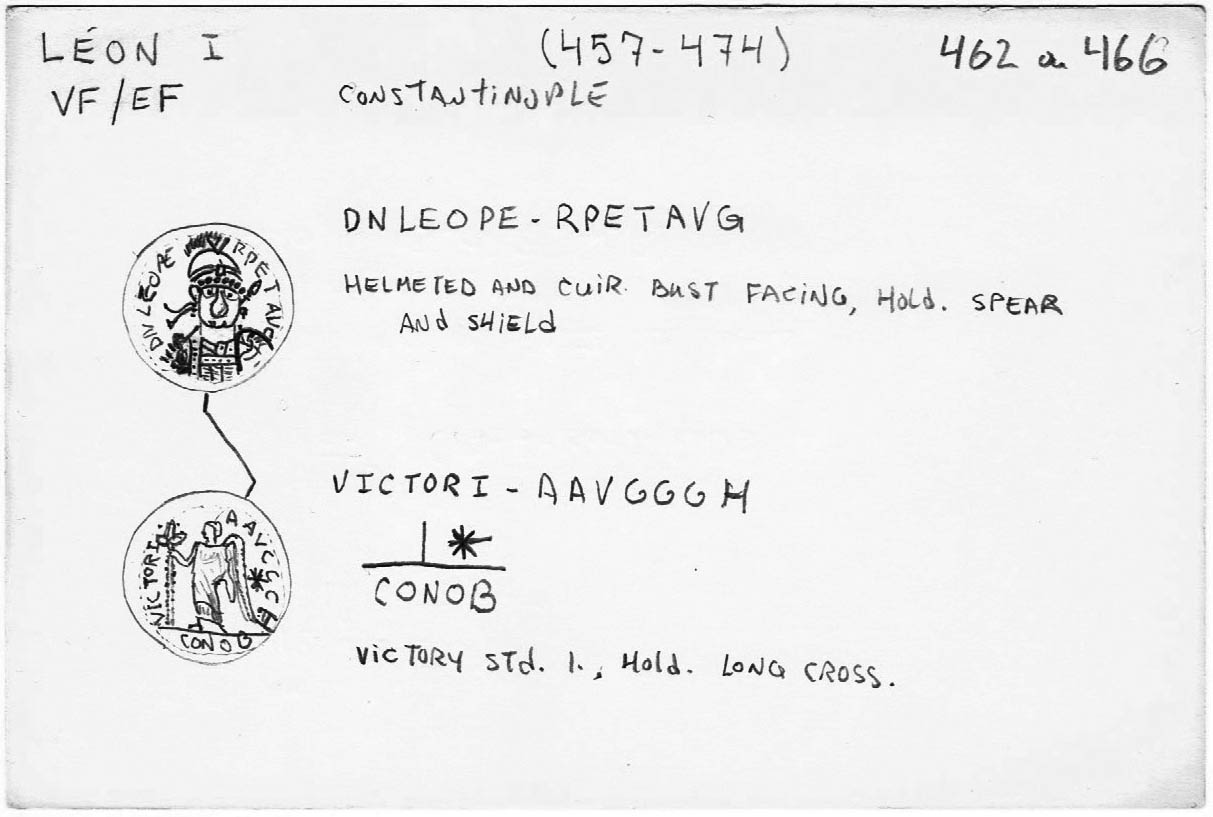 LÉON I (457-474) 462 ou 466
VF/EF CONSTANTINOPLE
DNLEOPE-RPETAVG
HELMETED AND CUIR. BUST FACING, HOLD. SPEAR
AND SHIELD
DN LEOPE RPET AVG
VICTORI-AAVGGGH
CONOB
VICTORI AAVGGGH
CONOB
VICTORY STd. l., HOLD. LONG CROSS.